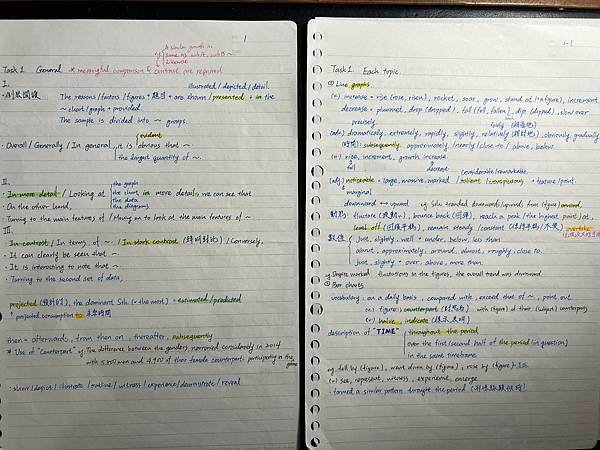 1
A similar growth in
Likewise
Task 1 General * meaningful comparison & contrast are required
I.
illustrated / depicted / detail.
The reasons / factors / figures + 題目 + are shown / presented + in the
~ chart / graph + provided.
The sample is divided into ~ groups.
evident
· Overall / Generally / In general, it is obvious that ~
the largest quantity of ~.
II.
the graph
· In more detail / Looking at the chart in more detail, we can see that
the data
· On the other hand, the diagrams
· Turning to the main features of / Moving on to look at the main features of ~
III.
· In contrast / In terms of ~ / In stark contrast / Conversely,
· It can be clearly be seen that ~
· It is interesting to note that ~
· Turning to the second set of data,
projected, the dominant Sth. (= the most) = estimated / predicted
projected consumption
then = afterwards, from then on, thereafter, subsequently
* Use of "Counterpart" eg. The difference between the genders narrowed considerably in 2014
with 5,800 men and 4,900 of their female counterparts participating in the
game
· show / depict / illustrate / outline / witness / experience / demonstrate / reveal
1-1
Task 1 Each topic
① Line graphs
(v.) increase = rise (rose, risen), rocket, soar, grow, stand at (+a figure), increment
decrease = plummet, drop (dropped), fall (fell, fallen), dip (dipped), slow over
precisely
(adv.) dramatically, extremely, rapidly, slightly, relatively, obviously, gradually
subsequently approximately / nearly / close to / above, below
(n.) rise, increment, growth, increase
fall decrease considerable / remarkable
(adj.) noticeable = large, massive, marked / salient / conspicuous + feature / point
marginal
downward ↔ upward eg. Sth. trended downwards / upwards, from (figure) onward,
fluctuate, bounce back, reach a peak / the highest point / at,
level off, remain steady / constant
overtake
數值 just, slightly, well + under, below, less than
about, approximately, around, almost, roughly, close to
just, slightly + over, above, more than
eg. Despite marked fluctuations in the figures, the overall trend was downward
② Bar charts
vocabulary: on a daily basis, compared with, exceed that of ~, point out
(n.) figure; counterpart with (figure) of their (subject) counterparts
(v.) indicate
description of "TIME" throughout the period
over the first / second half of the period (in question)
in the same timeframe
eg. fell by (figure), went down by (figure), rose by (figure)
(v.) see, represent, witness, experience, emerge
· formed a similar pattern throughout the period